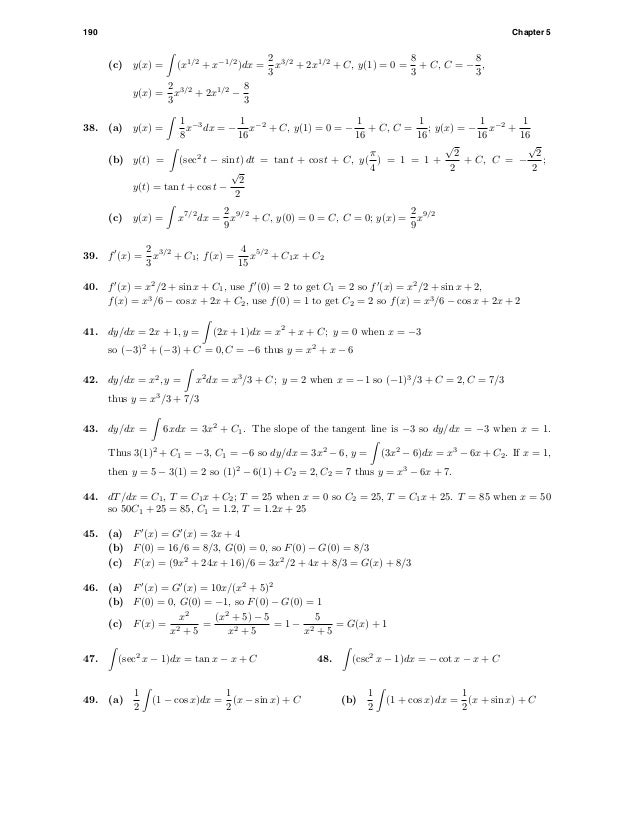 190 Chapter 5
(c) y(x) = ∫(x^{1/2} + x^{−1/2})dx = 2/3 x^{3/2} + 2x^{1/2} + C, y(1) = 0 = 8/3 + C, C = −8/3,
y(x) = 2/3 x^{3/2} + 2x^{1/2} − 8/3
38. (a) y(x) = ∫ 1/8 x^{−3}dx = −1/16 x^{−2} + C, y(1) = 0 = −1/16 + C, C = 1/16; y(x) = −1/16 x^{−2} + 1/16
(b) y(t) = ∫(sec² t − sin t) dt = tan t + cos t + C, y(π/4) = 1 = 1 + √2/2 + C, C = −√2/2;
y(t) = tan t + cos t − √2/2
(c) y(x) = ∫ x^{7/2}dx = 2/9 x^{9/2} + C, y(0) = 0 = C, C = 0; y(x) = 2/9 x^{9/2}
39. f′(x) = 2/3 x^{3/2} + C₁; f(x) = 4/15 x^{5/2} + C₁x + C₂
40. f′(x) = x²/2 + sin x + C₁, use f′(0) = 2 to get C₁ = 2 so f′(x) = x²/2 + sin x + 2,
f(x) = x³/6 − cos x + 2x + C₂, use f(0) = 1 to get C₂ = 2 so f(x) = x³/6 − cos x + 2x + 2
41. dy/dx = 2x + 1, y = ∫(2x + 1)dx = x² + x + C; y = 0 when x = −3
so (−3)² + (−3) + C = 0, C = −6 thus y = x² + x − 6
42. dy/dx = x², y = ∫ x²dx = x³/3 + C; y = 2 when x = −1 so (−1)³/3 + C = 2, C = 7/3
thus y = x³/3 + 7/3
43. dy/dx = ∫ 6xdx = 3x² + C₁. The slope of the tangent line is −3 so dy/dx = −3 when x = 1.
Thus 3(1)² + C₁ = −3, C₁ = −6 so dy/dx = 3x² − 6, y = ∫(3x² − 6)dx = x³ − 6x + C₂. If x = 1,
then y = 5 − 3(1) = 2 so (1)² − 6(1) + C₂ = 2, C₂ = 7 thus y = x³ − 6x + 7.
44. dT/dx = C₁, T = C₁x + C₂; T = 25 when x = 0 so C₂ = 25, T = C₁x + 25. T = 85 when x = 50
so 50C₁ + 25 = 85, C₁ = 1.2, T = 1.2x + 25
45. (a) F′(x) = G′(x) = 3x + 4
(b) F(0) = 16/6 = 8/3, G(0) = 0, so F(0) − G(0) = 8/3
(c) F(x) = (9x² + 24x + 16)/6 = 3x²/2 + 4x + 8/3 = G(x) + 8/3
46. (a) F′(x) = G′(x) = 10x/(x² + 5)²
(b) F(0) = 0, G(0) = −1, so F(0) − G(0) = 1
(c) F(x) = x²/(x² + 5) = ((x² + 5) − 5)/(x² + 5) = 1 − 5/(x² + 5) = G(x) + 1
47. ∫(sec² x − 1)dx = tan x − x + C 48. ∫(csc² x − 1)dx = − cot x − x + C
49. (a) 1/2 ∫(1 − cos x)dx = 1/2(x − sin x) + C (b) 1/2 ∫(1 + cos x) dx = 1/2(x + sin x) + C